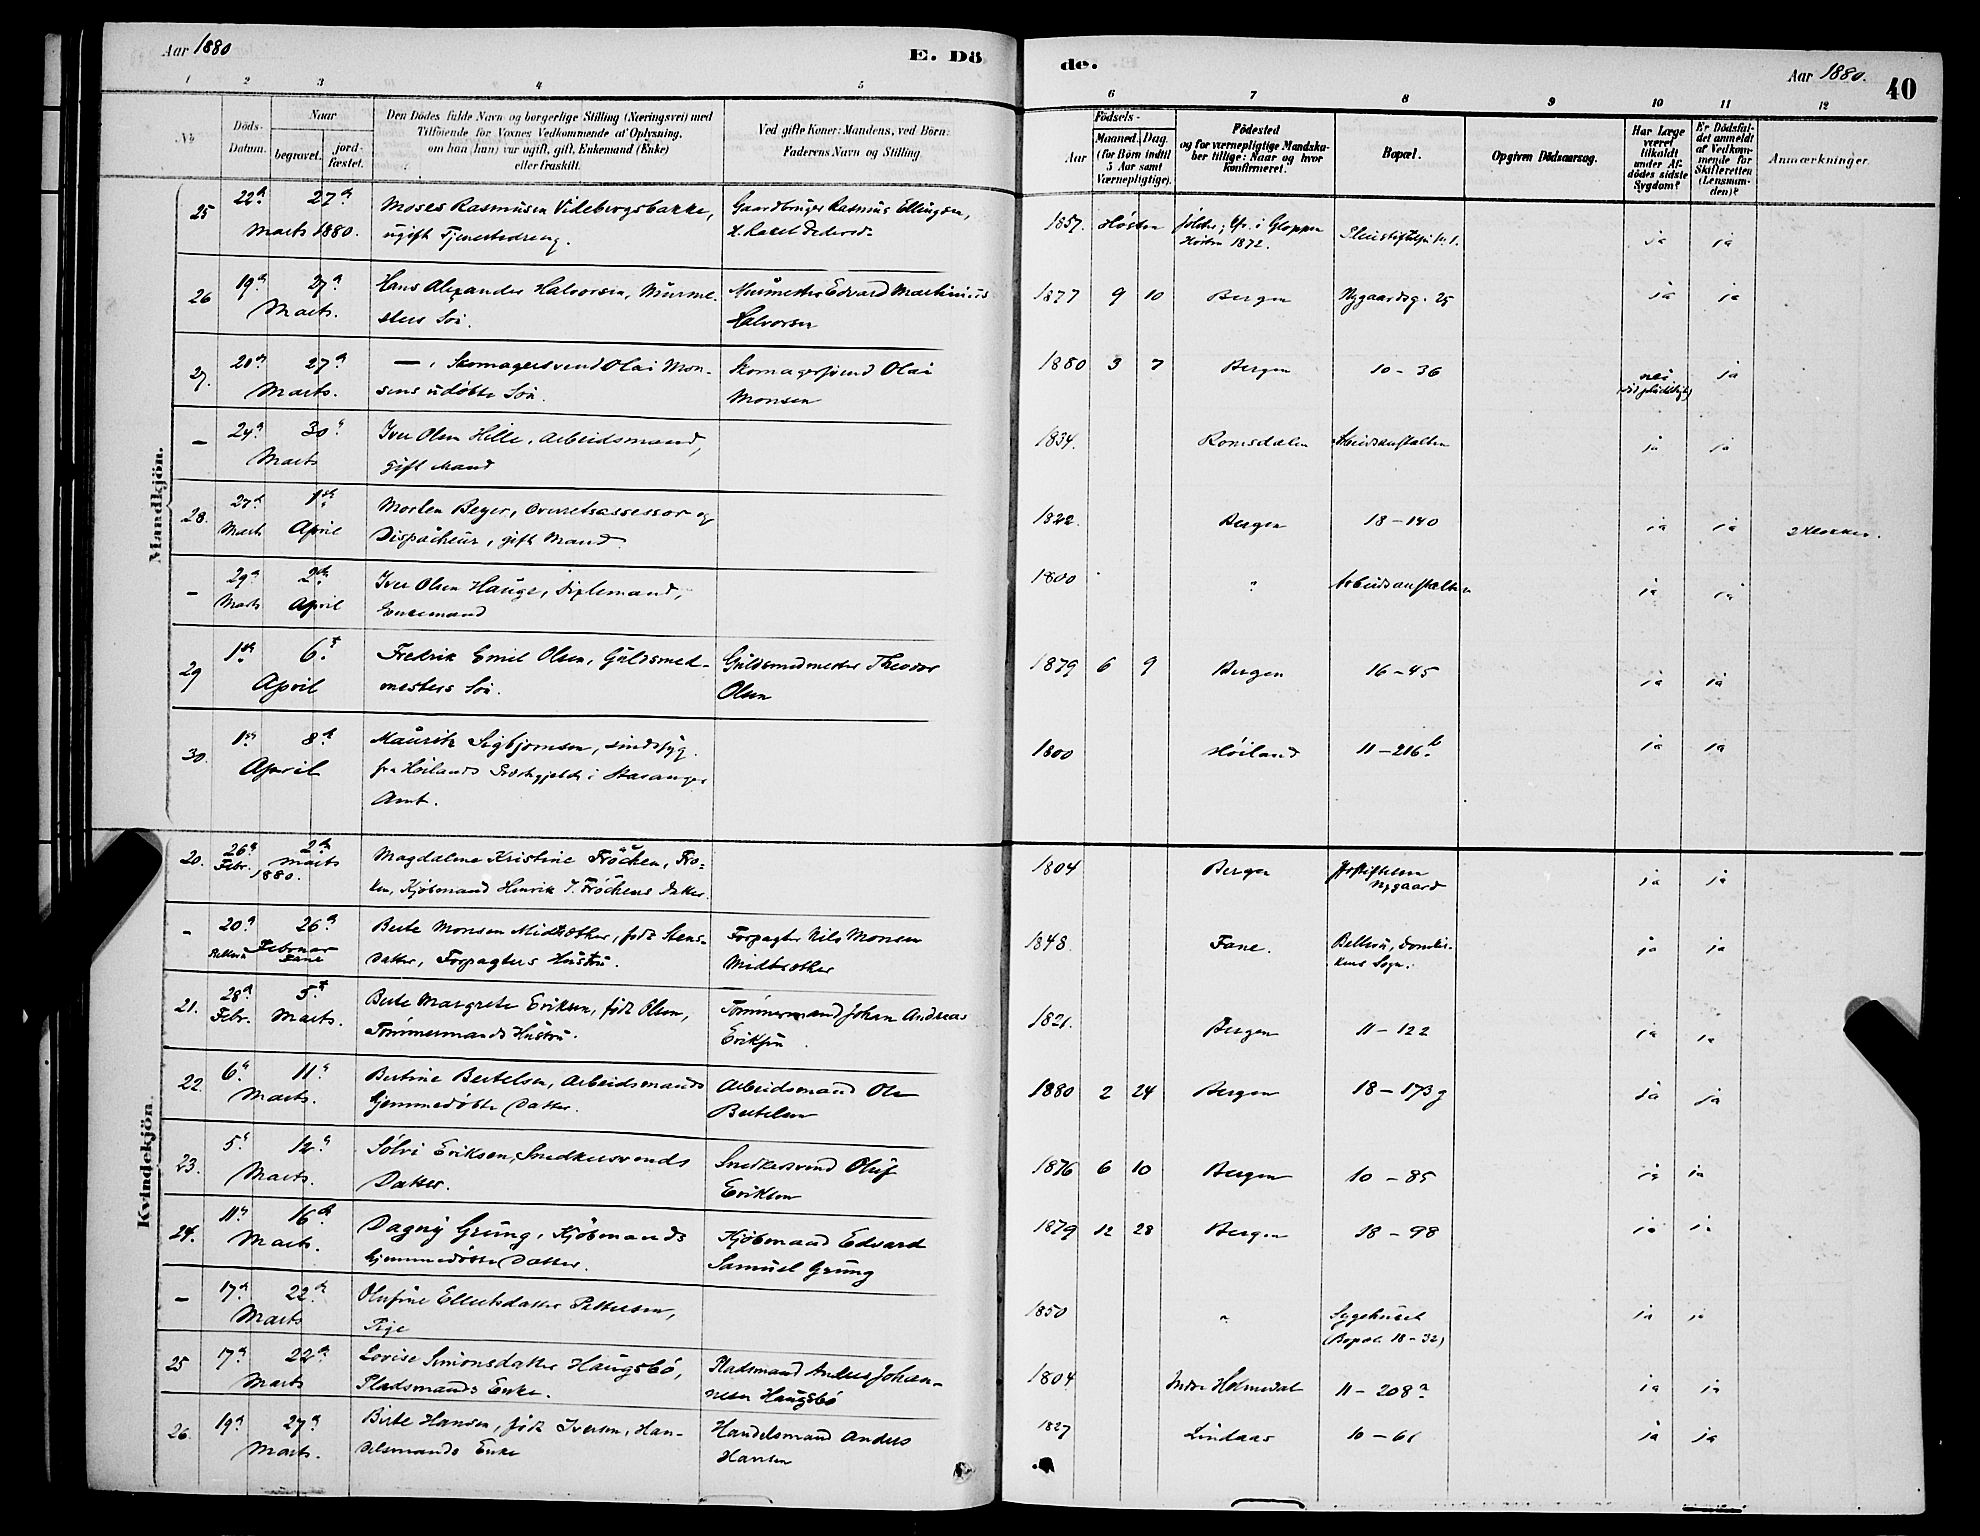 Aar 1880
E. Dö
de.
Aar 1880.
40
1 2 3 4 5 6 7 8 9 10 11 12
No
Döds-
Datum.
Naar
begravet.
jord-
fæstet.
Den Dödes fulde Navn og borgerlige Stilling (Næringsvei) med
Tilföiende for Voxnes Vedkommende af Oplysning,
om han (hun) var ugift, gift, Enkemand (Enke)
eller fraskilt.
Ved gifte Koner: Mandens, ved Börn:
Faderens Navn og Stilling.
Födsels-
Aar
Maaned. Dag.
(for Börn indtil
5 Aar samt
Værnepligtige).
Födested
og for værnepligtige Mandska-
ber tillige: Naar og hvor
konfirmeret.
Bopæl.
Opgiven Dödsaarsag.
Har Læge
været
tilkaldt
under Af-
dödes sidste
Sygdom?
Er Dödsfal-
det anmeldt
af Vedkom-
mende for
Skifteretten
(Lensman-
den)?
Anmærkninger.
Mandkjön.
25 22de 27de
Marts 1880.
Moses Rasmusen Videborgsbakke,
ugift Tjenestedreng.
Gaardbruger Rasmus Ellingsen,
1857. Hösten
i Gloppen
Hösten 1872.
ja ja
26 19de 27de
Marts.
Hans Alexander Halvorsen, Murme-
sters Sön.
Murmester Edvard Martinius
Halvorsen
1877 9 10 Bergen Nygaardsg. 25 ja ja
27. 20de 27de
Marts.
—, Skomagersvend Olai Mon-
sens udöbte Sön.
Skomagersvend Olai
Monsen
1880 3 7 Bergen 10 - 36 nei ja
- 24de 30te
Marts
Iver Olsen Hille, Arbeidsmand,
gift Mand
1834. Romsdalen Arbeidsanstalten ja ja
28. 27de 1ste
Marts April
Morten Beyer, Overretsassessor og
Dispacheur, gift Mand.
1822. Bergen 18 - 140 ja ja 2 Klokker.
- 29de 2den
Marts April
Iver Olsen Hauge, Pixlemand,
Enkemand
1800 " Arbeidsanstalten ja ja
29 1ste 6te
April
Fredrik Emil Olsen, Guldsmed-
mesters Sön.
Guldsmedmester Theodor
Olsen
1879 6 9 Bergen 16 - 45 ja ja
30. 1ste 8de
April
Mauritz Sigbjørnsen, sindssyg.
fra Höilands Præstegjeld i Stavanger
Amt.
1800 Höiland 11 - 216 b ja ja
Kvindekjön.
20. 26de 2den
Febr. Marts
1880.
Magdalene Kristine Fröchen, Frö-
ken, Kjöbmand Henrik J. Fröchens Datter.
1804 Bergen
Nygaard
ja ja
- 20de 26de
Februar
Fane
Berte Monsen Midtsæther, född Stens-
datter, Forpagters Hustru.
Forpagter Nils Monsen
Midtsæther
1848. Fane. Bellevu, Domkir-
kens Sogn.
ja ja
21. 28de 5te
Febr. Marts.
Berte Margrete Eriksen, född Olsen,
Tömmermands Hustru.
Tömmermand Johan Andreas
Eriksen
1821. Bergen 11 - 122 ja ja
22. 6te 11te
Marts.
Bertine Bertelsen, Arbeidsmands
hjemmedöbte Datter.
Arbeidsmand Ole
Bertelsen
1880 2 24 Bergen 18 - 173 g ja ja
23. 5te 12te
Marts.
Sölvi Eriksen, Snedkersvends
Datter.
Snedkersvend Oluf
Eriksen
1876 6 10 Bergen 10 - 85 ja ja
24. 11te 16de
Marts.
Dagny Grung, Kjöbmands
hjemmedöbte Datter.
Kjöbmand Edvard
Samuel Grung
1879 12 28 Bergen 18 - 98 ja ja
- 17de 22de
Marts
Olufine Ellertsdatter Pettersen,
Pige
1850 " Sygehuset
(Bopæl 18 - 32)
ja ja
25 17de 22de
Marts
Lovise Simonsdatter Haugsbö,
Pladsmands Enke.
Pladsmand Anders Johan-
nesen Haugsbö
1804 Indre Holmedal 11 - 208 a ja ja
26. 19de 27de
Marts.
Berte Hansen, född Iversen, Han-
delsmands Enke
Handelsmand Anders
Hansen
1827 Lindaas 10 - 61 ja ja